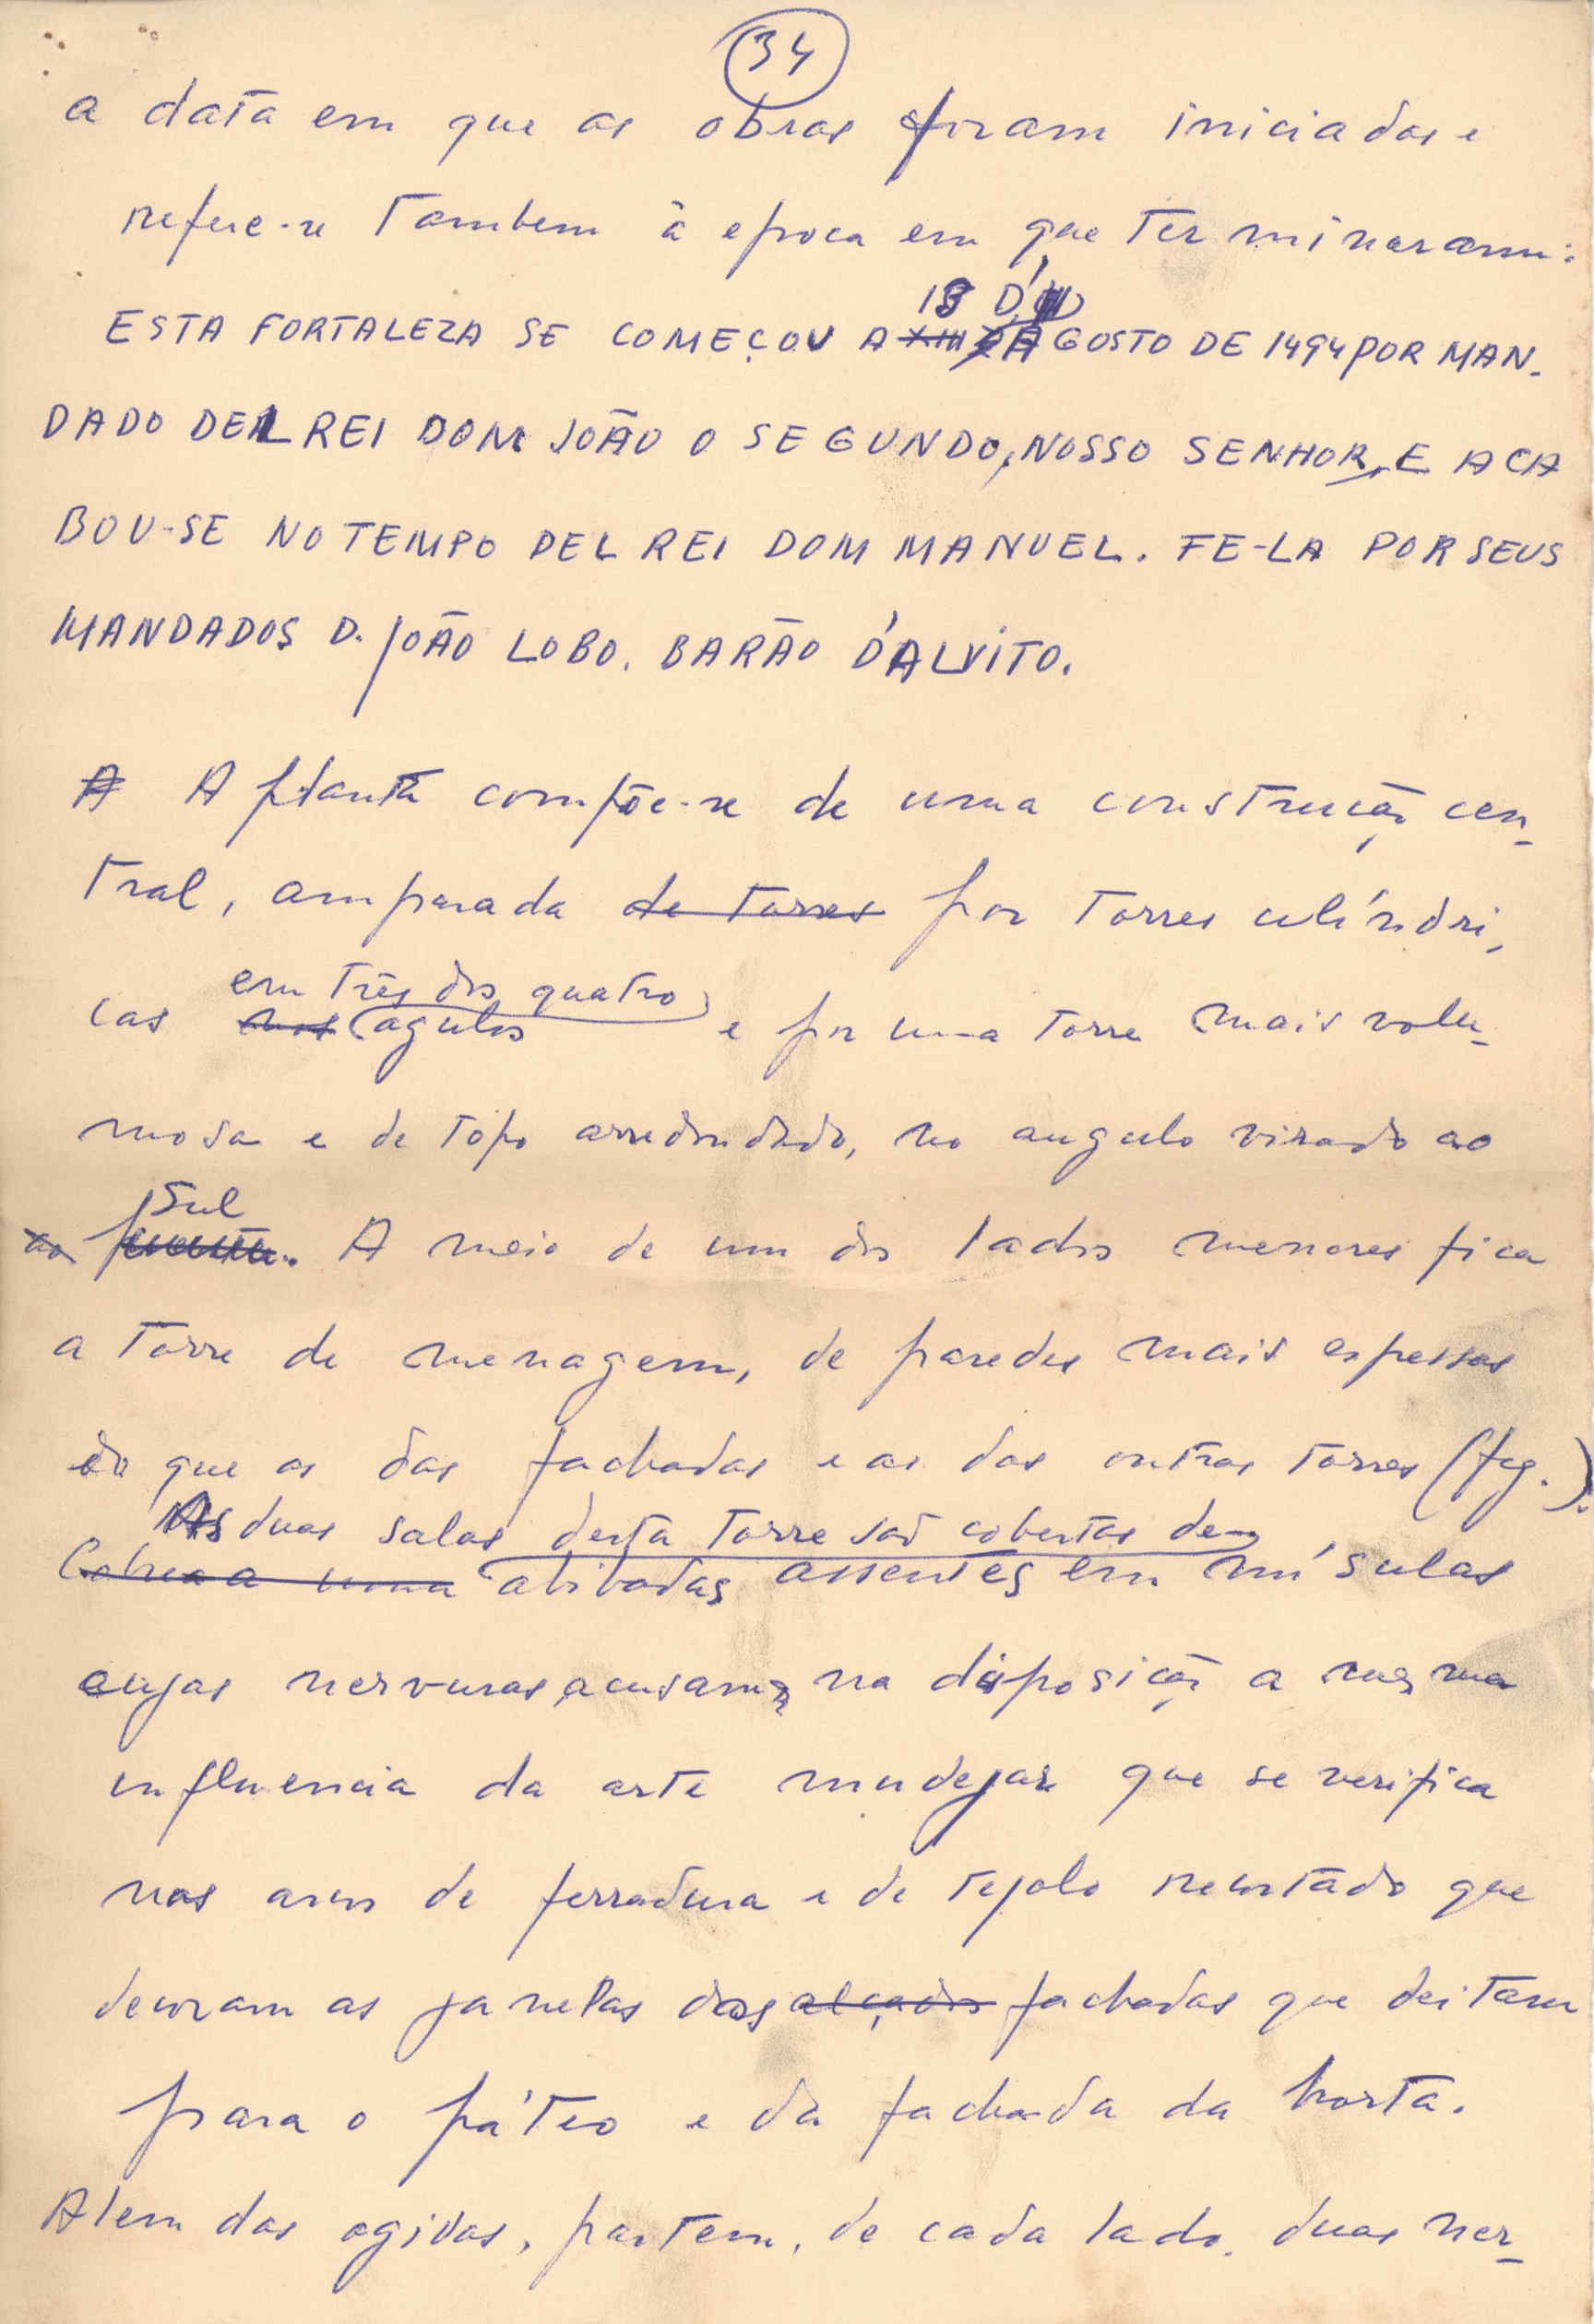 34
a data em que as obras foram iniciadas e
refere-se tambem à epoca em que terminaram:
13 D'
ESTA FORTALEZA SE COMEÇOU A XIII D'AGOSTO DE 1494 POR MAN-
DADO DEL REI DOM JOÃO O SEGUNDO, NOSSO SENHOR, E ACA
BOU-SE NO TEMPO DEL REI DOM MANUEL. FE-LA POR SEUS
MANDADOS D. JOÃO LOBO, BARÃO D'ALVITO.
A A planta compõe-se de uma construção cen-
tral, amparada de torres por torres cilíndri-
em três dos quatro
cas nos agulos e por uma torre mais volu-
mosa e de topo arredondado, no angulo virado ao
Sul
ao A meio de um dos lados menores fica
a torre de menagem, de paredes mais espessas
do que as das fachadas e as das outras torres (fig. ).
As duas salas desta torre são cobertas de
Cobre-a uma abibadas assentes em mísulas
cujas nervuras, acusam, na disposição a mesma
influencia da arte mudejar que se verifica
nos arcos de ferradura e de tejolo recortado que
decoram as janelas das alçados fachadas que deitam
para o páteo e da fachada da horta.
Alem das ogivas, partem, de cada lado, duas ner-